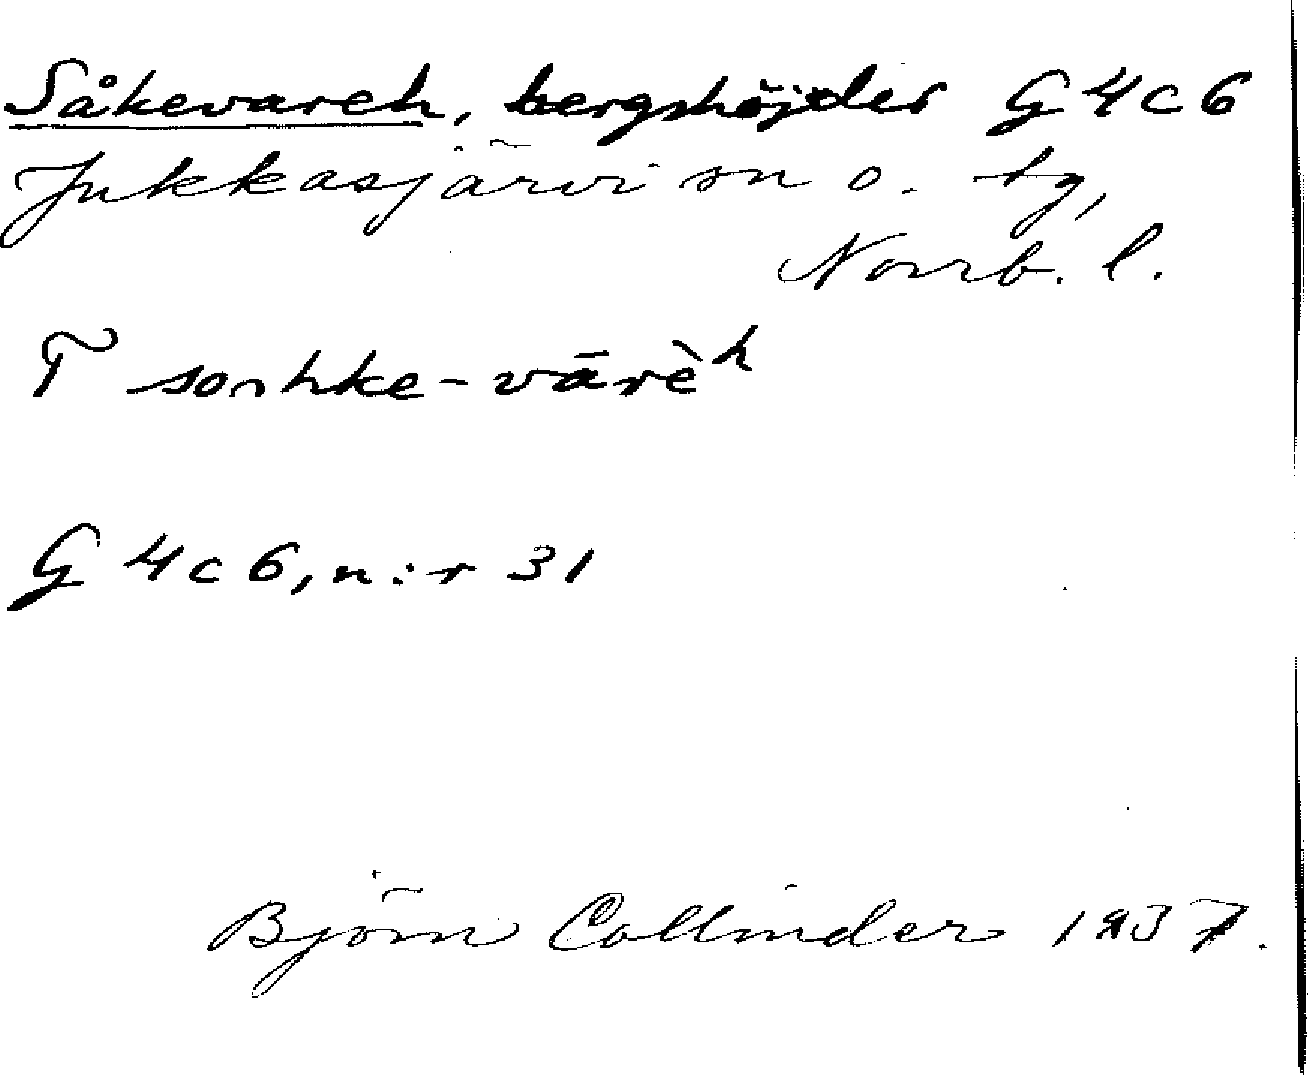 Såkevareh, bergshöjder G 4 c 6
Jukkasjärvi sn o. tg,
Norrb. l.
T sonhke-vārèʰ
G 4 c 6, n:r 31
Björn Collinder 1937.